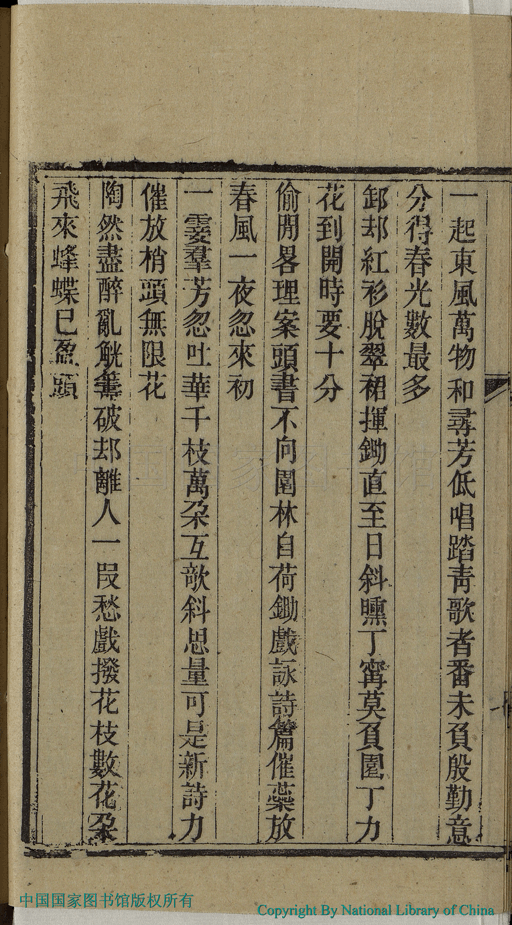 一起東風萬物和尋芳低唱踏靑歌者番未負殷勤意
分得春光數最多
卸却紅衫脫翠裙揮鋤直至日斜曛丁寗莫負園丁力
花到開時要十分
偷閒畧理案頭書不向園林自荷鋤戲詠詩篇催蘂放
春風一夜忽來初
一霎羣芳忽吐華千枝萬朶互欹斜思量可是新詩力
催放梢頭無限花
陶然盡醉亂觥籌破却離人一段愁戲撥花枝數花朶
飛來蜂蝶已盈頭
中国国家图书馆版权所有
Copyright By National Library of China